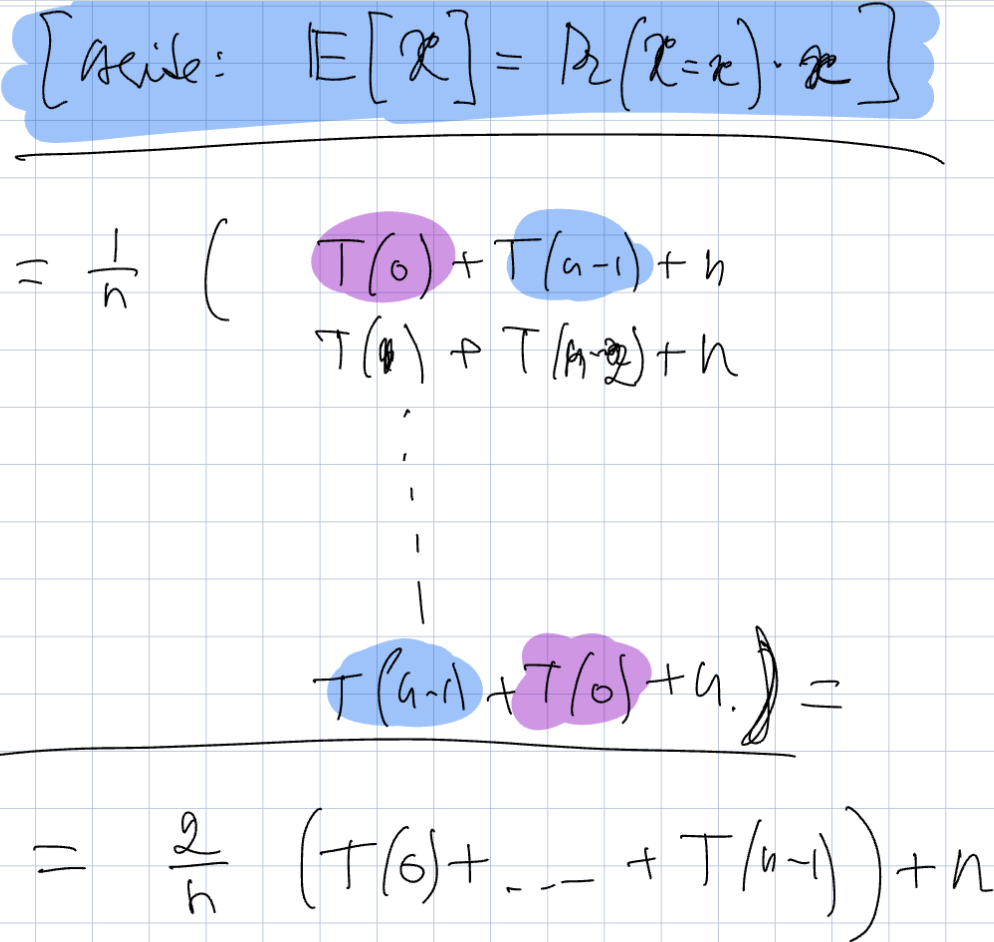 [Aside: E[X] = Pr(X=x)·x]
= 1/n ( T(0) + T(n-1) + n
T(1) + T(n-2) + n
T(n-1) + T(0) + n.) =
= 2/n (T(0) + .... + T(n-1)) + n